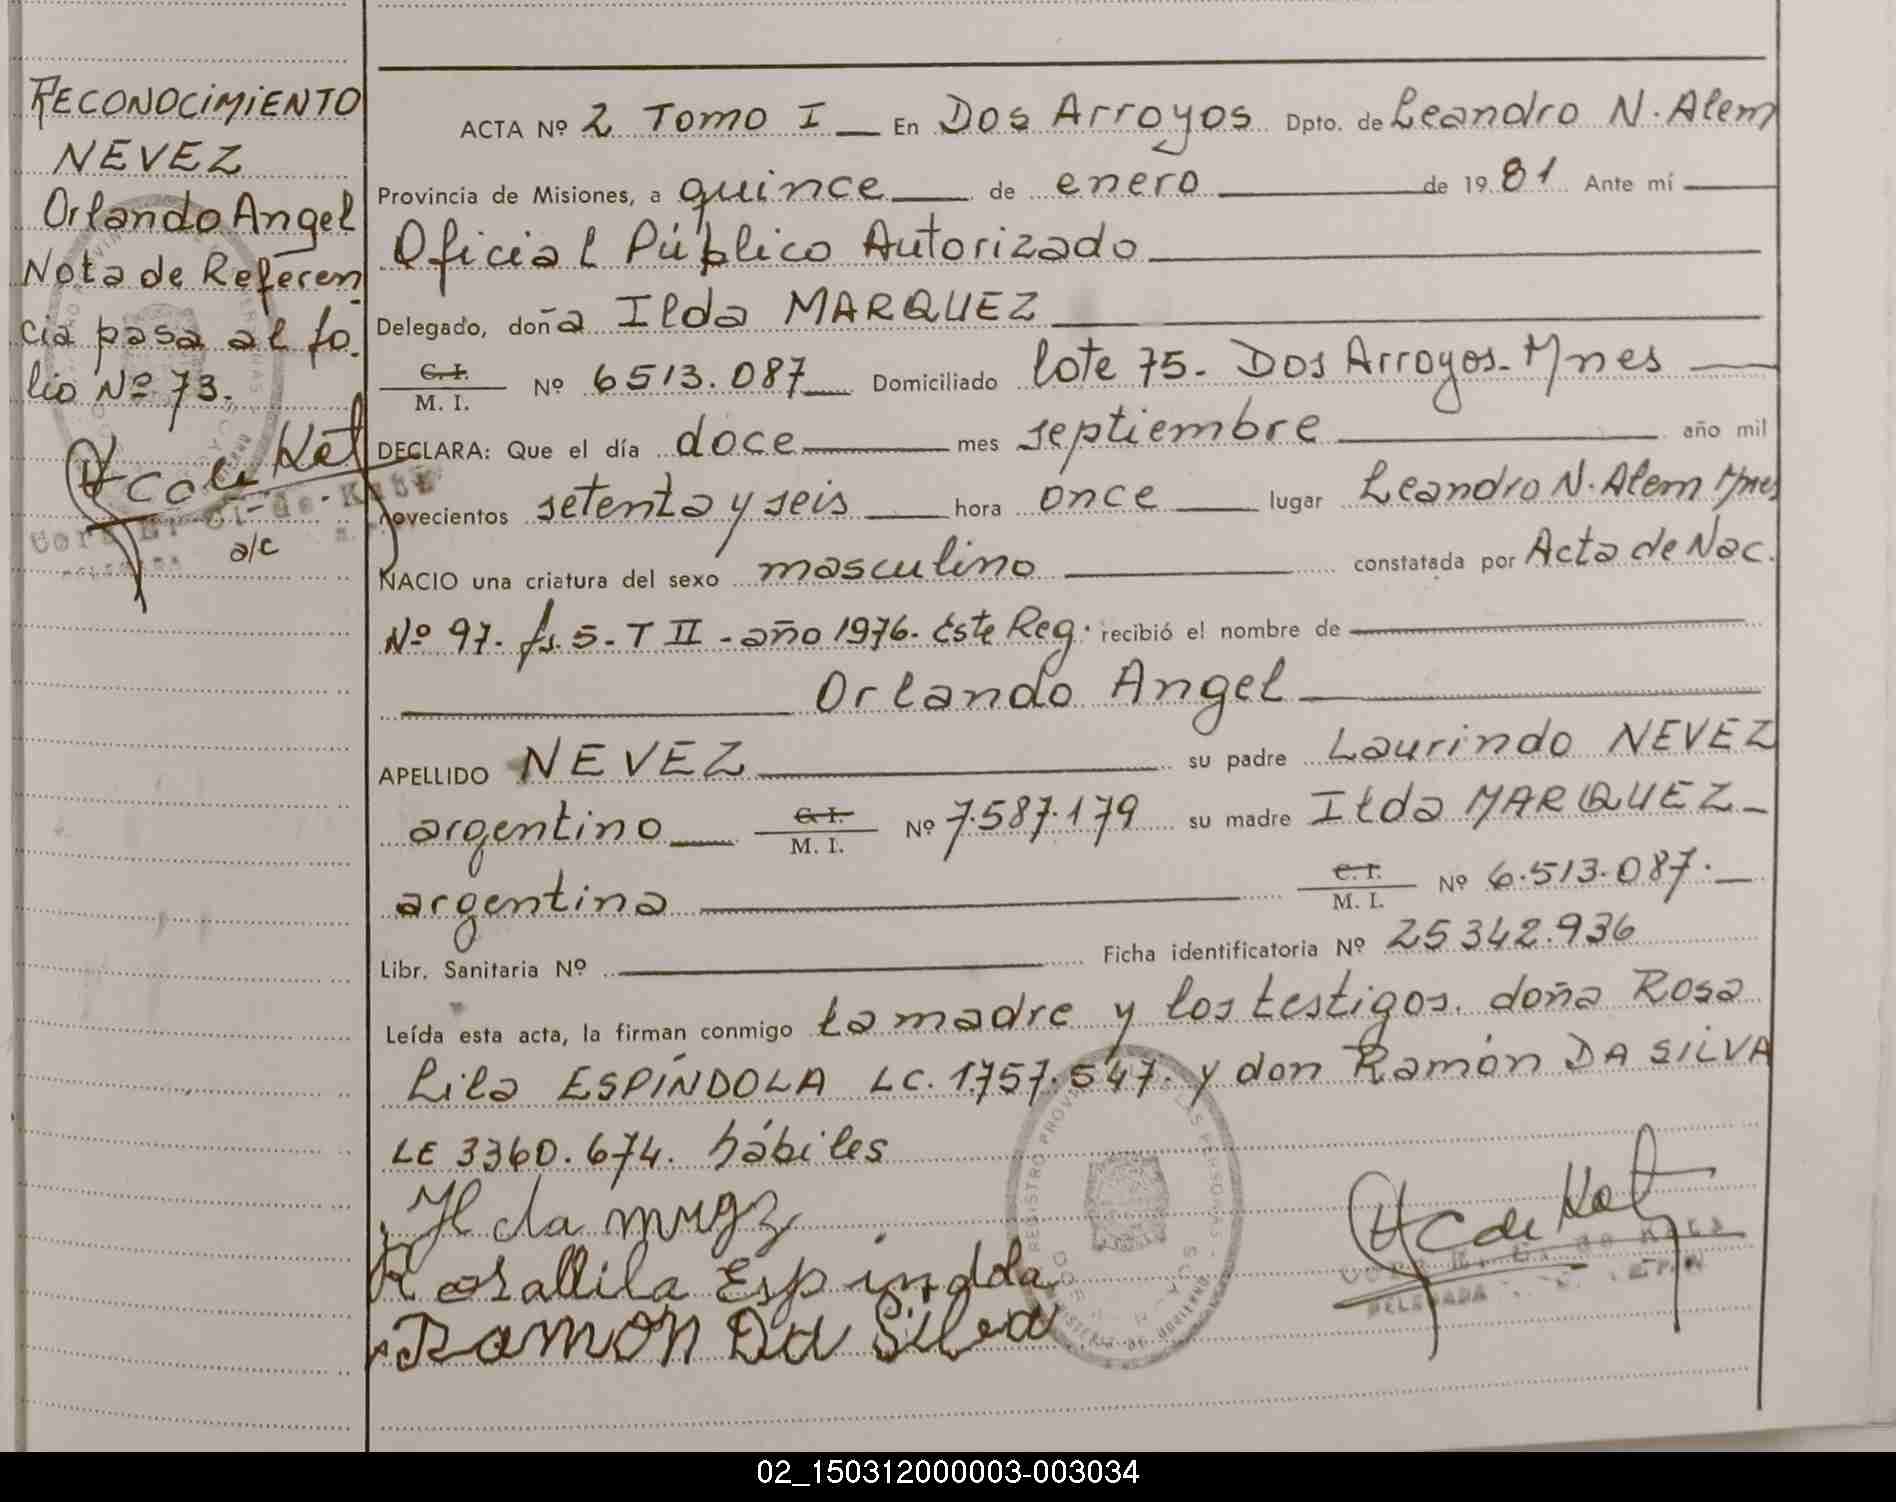 RECONOCIMIENTO
NEVEZ
Orlando Angel
Nota de Referen-
cia pasa al fo-
lio Nº 73.
a/c
ACTA Nº 2 Tomo I En Dos Arroyos Dpto. de Leandro N. Alem
Provincia de Misiones, a quince de enero de 1981 Ante mí
Oficial Público Autorizado
Delegado, doña Ilda MARQUEZ
C. I.
M. I. Nº 6513.087 Domiciliado lote 75. Dos Arroyos. Mnes
DECLARA: Que el día doce mes septiembre año mil
novecientos setenta y seis hora once lugar Leandro N. Alem Mnes
NACIO una criatura del sexo masculino constatada por Acta de Nac.
Nº 97. fs. 5 - T II - año 1976. Este Reg. recibió el nombre de
Orlando Angel
APELLIDO NEVEZ su padre Laurindo NEVEZ
argentino C. I. M. I. Nº 7.587.179 su madre Ilda MARQUEZ
argentina C. I. M. I. Nº 6.513.087.
Libr. Sanitaria Nº Ficha identificatoria Nº 25342.936
Leída esta acta, la firman conmigo la madre y los testigos. doña Rosa
Lila ESPÍNDOLA LC. 1.757.547. y don Ramón DA SILVA
LE 3360.674. hábiles
Ilda mrgz
Rosa llila Espindola
Ramon Da Silva
DELEGADA
02_150312000003-003034